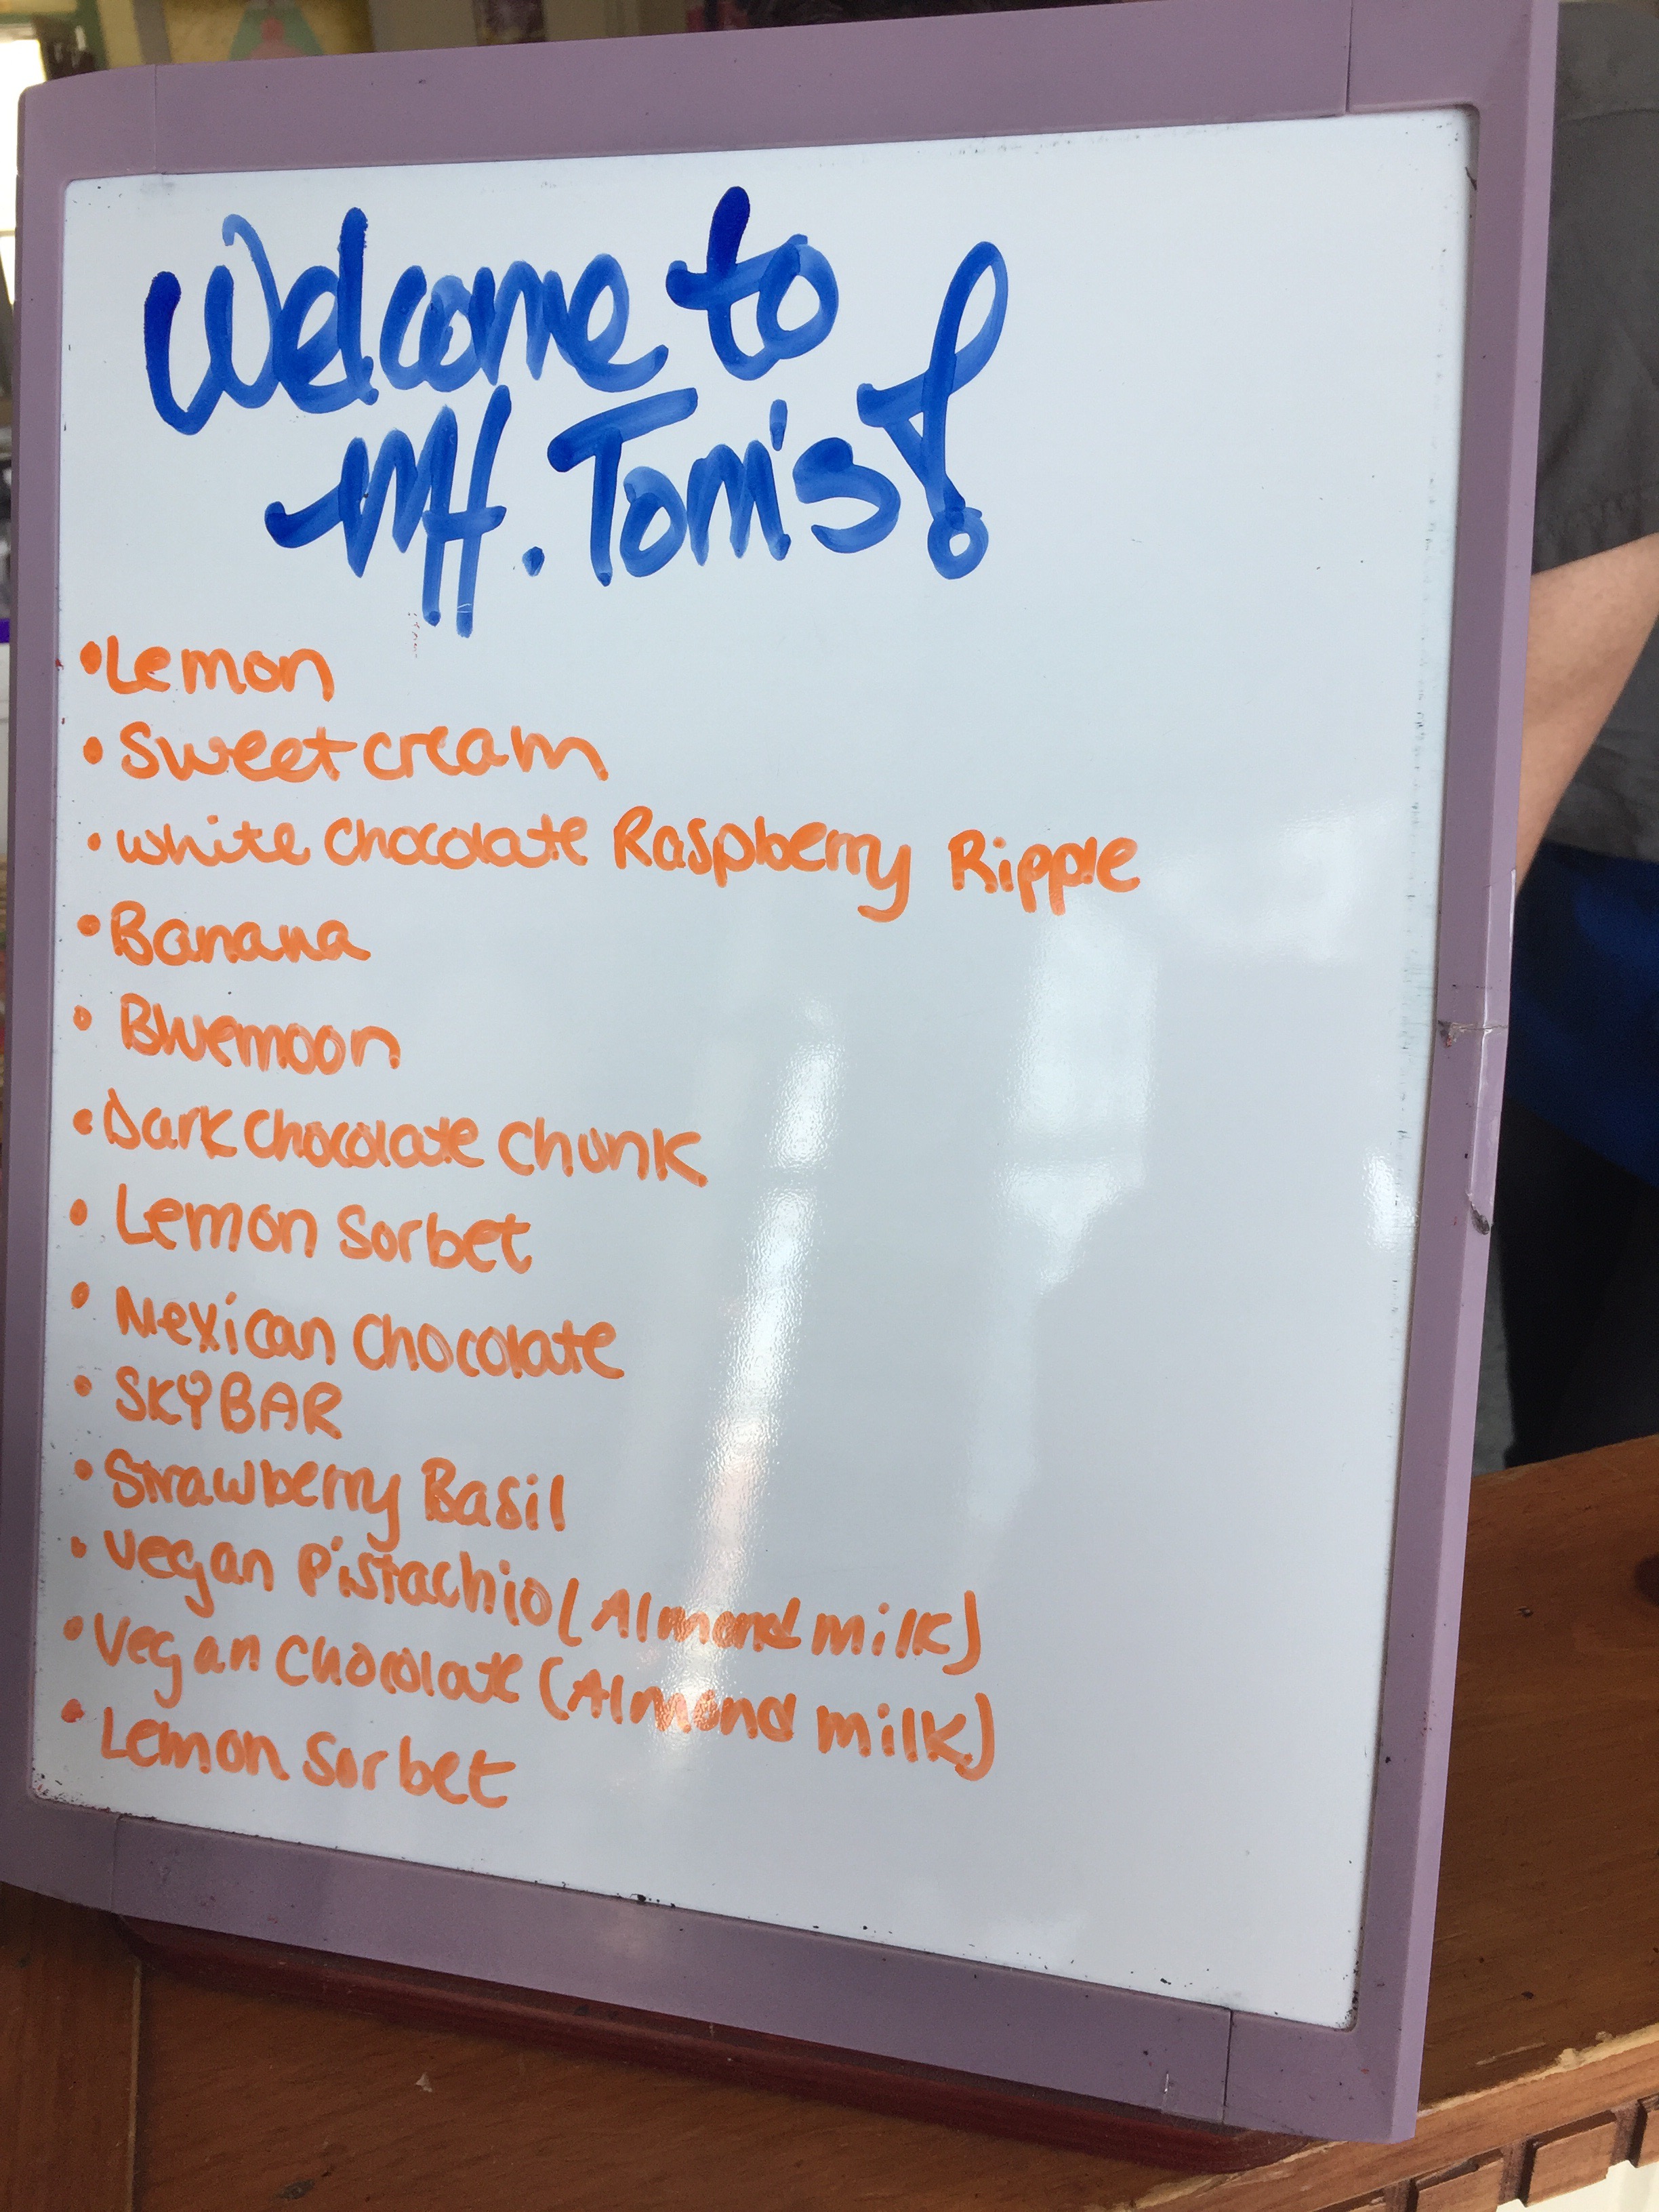 Welcome to
Mt. Tom's!
•Lemon
• Sweet cream
• white chocolate Raspberry Ripple
•Banana
• Bluemoon
•Dark chocolate chunk
• Lemon Sorbet
• Mexican chocolate
• SKYBAR
• Strawberry Basil
• Vegan Pistachio (Almond milk)
• Vegan chocolate (Almond milk)
• Lemon Sorbet